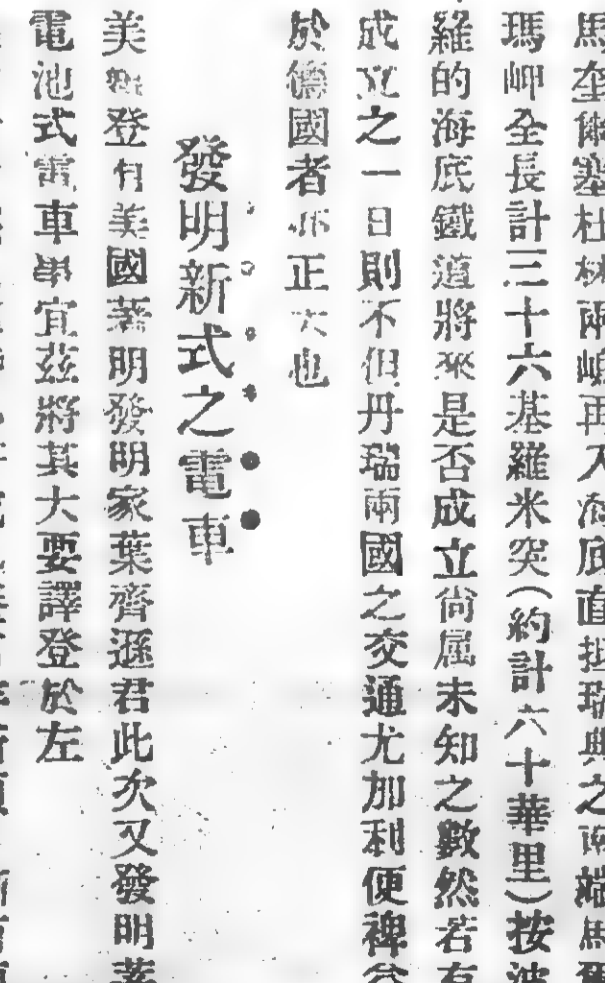 馬奎爾塞杜林兩嶼再入海底直抵瑞典之南端馬爾
瑪岬全長計三十六基羅米突(約計六十華里)按波
羅的海底鐵道將來是否成立尙屬未知之數然若有
成立之一日則不但丹瑞兩國之交通尤加利便裨益
於德國者亦正大也
發明新式之電車
美報登有美國著明發明家葉齊遜君此次又發明蓄
電池式電車畢宜茲將其大要譯登於左